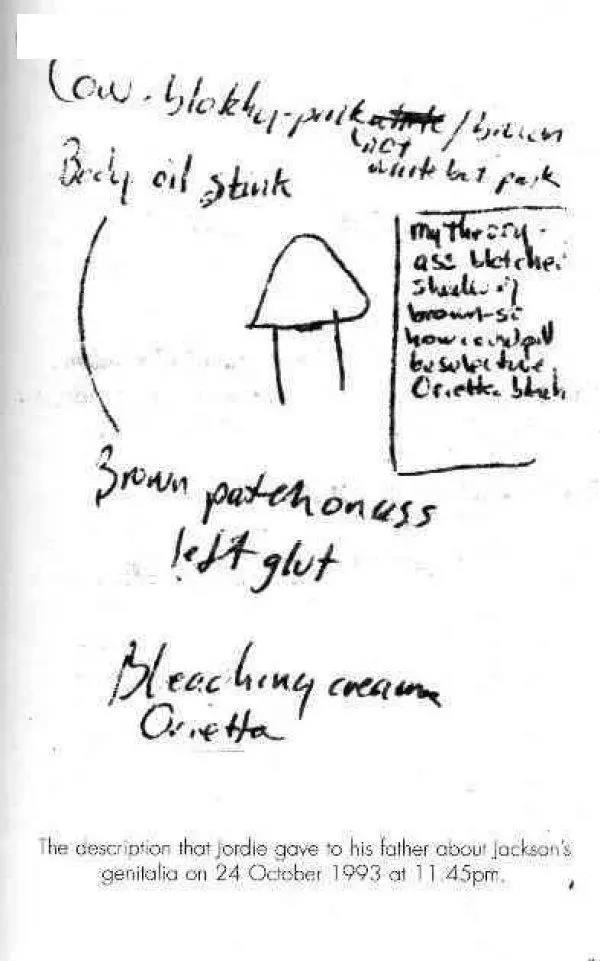 Cow-blotchy-pink /brown
not
white but pink
Body oil stink
my theory-
ass blotches
brown-so
how could
be selective
Orietta
Brown patch on ass
left glut
Bleaching cream
Orietta
The description that Jordie gave to his father about Jackson's
genitalia on 24 October 1993 at 11.45pm.